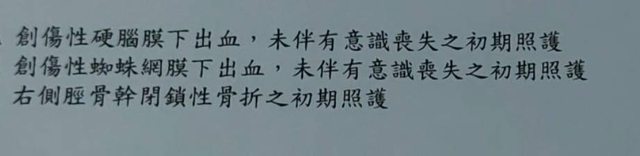 創傷性硬腦膜下出血，未伴有意識喪失之初期照護
創傷性蜘蛛網膜下出血，未伴有意識喪失之初期照護
右側脛骨幹閉鎖性骨折之初期照護